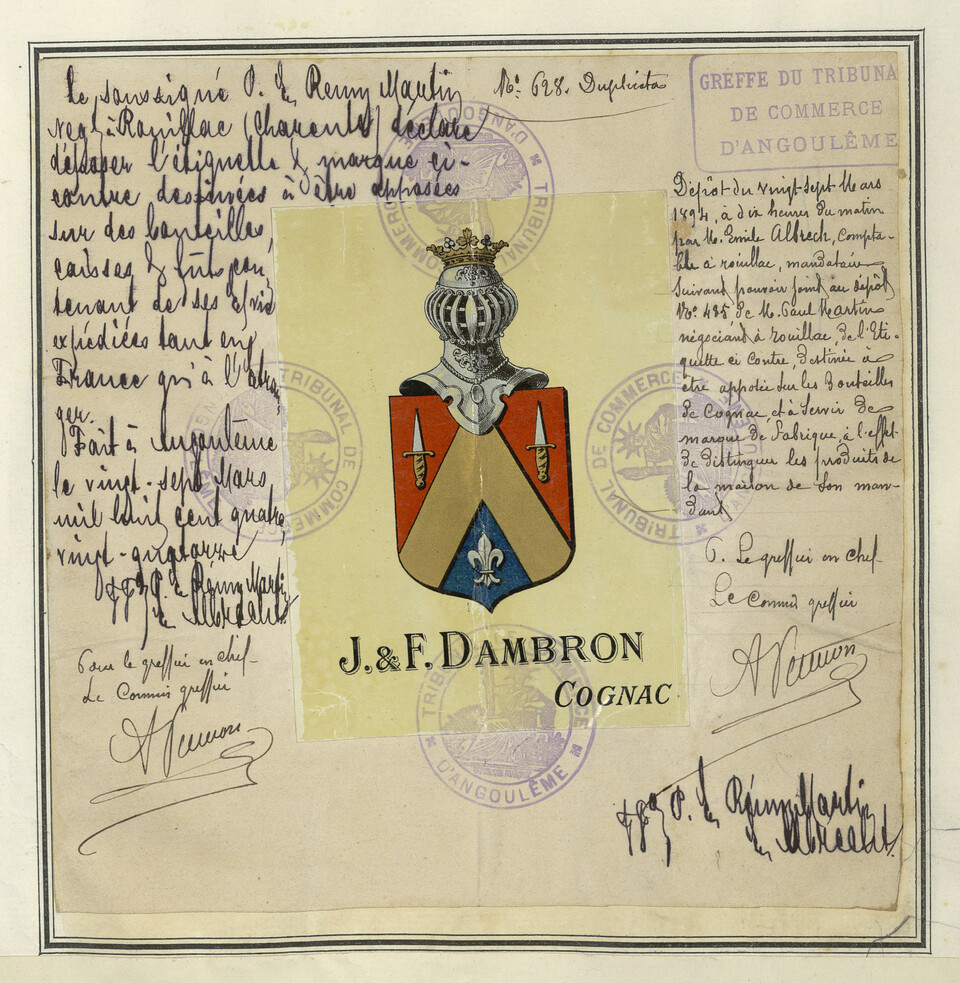 Le soussigné P. E. Remy Martin
Negt à Rouillac (Charente) déclare
déposer l'étiquette & marque ci-
contre destinées à être apposées
sur des bouteilles,
caisses & fûts con
tenant de ses
expédiées tant en
France qu'à l'étran
ger.
Fait à Angoulême
le vingt-sept Mars
mil huit cent quatre
vingt-quatorze
P. E. Rémy Martin
Pour le greffier en chef
Le Commis greffier
No. 628. Duplicata
GREFFE DU TRIBUNA
DE COMMERCE
D'ANGOULÊME
Dépôt du vingt sept Mars
1894, à dix heures du matin
par M. Emile Albrech, Compta-
ble à rouillac, mandataire
suivant pouvoir joint au dépôt
No. 485 de M. Paul Martin
négociant à rouillac, de l'Eti-
quette ci contre, destinée à
être apposée sur les Bouteilles
de Cognac et à Servir de
marque de Fabrique, à l'effet
de distinguer les produits de
la maison de Son man-
dant
P. Le greffier en chef
Le Commis greffier
P. E. Rémy Martin
J. & F. DAMBRON
COGNAC
TRIBUNAL DE COMMERCE
D'ANGOULÊME
TRIBUNAL DE COMMERCE
TRIBUNAL DE COMMERCE
TRIBUNAL
D'ANGOULÊME